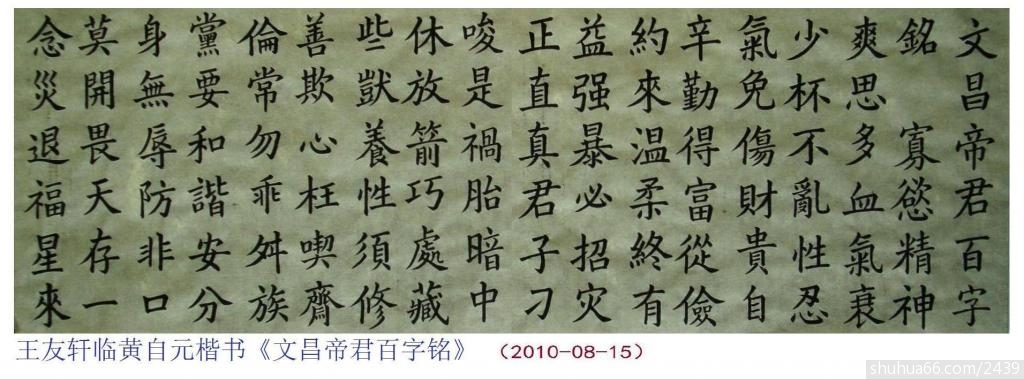 文昌帝君百字
銘 寡慾精神
爽思多血氣衰
少杯不亂性忍
氣免傷財貴自
辛勤得富從儉
約來温柔終有
益强暴必招灾
正直真君子刁
唆是禍胎暗中
休放箭巧處藏
些獃養性須修
善欺心枉喫齋
倫常勿乖舛族
黨要和諧安分
身無辱防非口
莫開畏天存一
念災退福星來
王友轩临黄自元楷书《文昌帝君百字铭》 （2010-08-15）
shuhua66.com/2439